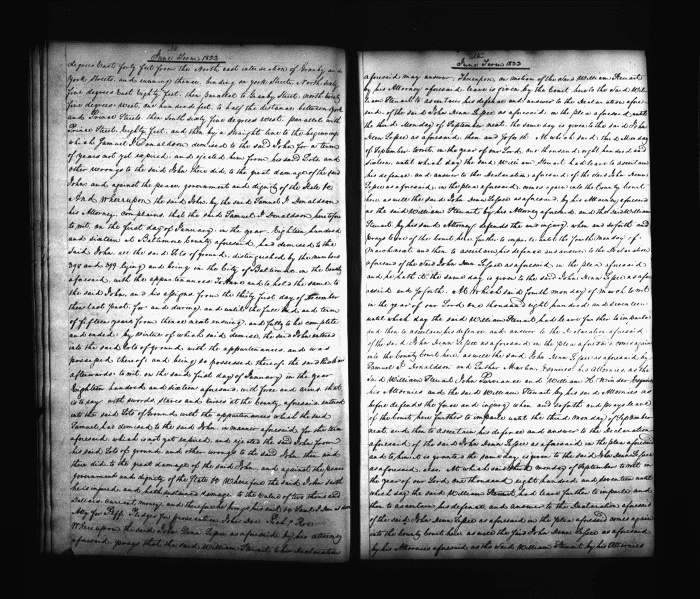 June Term 1833
degrees East forty feet from the North east intersection of Granby and
York Streets and running thence, binding on York Streets, North sixty
five degrees East Eighty feet, then parallel to Granby Street, North twenty
five degrees west, one hundred feet, to half the distance between York
and Streets, then South sixty five degrees west, parallel with
Street Eighty feet, and then by a Straight line to the beginning
which Samuel J Donaldson demised to the said John for a term
of years not yet expired, and ejected him from his said Lots and
other wrongs to the said John there did, to the great damage of the said
John and against the peace government and dignity of the State &c
And Whereupon the said John, by the said Samuel J Donaldson
his Attorney, complains, that the said Samuel J. Donaldson heretofore
to wit, on the first day of January in the year Eighteen hundred
and sixteen at Baltimore County aforesaid, had demised to the
said John all the said Lots of Ground, distinguished by the numbers
398 and 399 lying and being in the City of Baltimore, in the County
aforesaid, with the appurtenances To Have and to hold the same, to
the said John, and his assigns from the thirty first day of December
then last past, for and during and until the full end and term
of fifteen years from thence next ensuing and fully to be complete
and ended. By virtue of which said demise, the said John entered
into the said Lots of ground with the appurtenances and was
possessed thereof, and being so possessed thereof, the said
afterwards to wit, on the said first day of January in the year
Eighteen hundred and sixteen aforesaid, with force and arms that
is to say with swords staves and knives at the County aforesaid entered
into the said Lots of Ground, with the appurtenances which the said
Samuel has demised to the said John in manner aforesaid for the term
aforesaid which is not yet expired, and ejected the said John from
his said Lots of ground and other wrongs to the said John then and
there did to the great damage of the said John, and against the peace
government and dignity of the State &c Wherefore the said John saith
he is injured, and hath sustained damage to the value of two thousand
Dollars, current money, and therefore he brings his suit &c Saml. J Donaldson
Atty for Plff Pledges for prosecution John Doe Richd Roe
Whereupon the said John Denn Lessee as aforesaid by his attorney
aforesaid prays that the said William Stewart to his Declaration
June Term 1833
aforesaid may answer. Thereupon, on motion of the said William Stewart
by his Attorney aforesaid leave is given by the Court here to the said Wil-
liam Stewart to ascertain his defence and answer to the Declaration afore-
said of the said John Denn Lessee as aforesaid in the plea aforesaid, until
the third Monday of September next, the same day is given to the said John
Denn Lessee as aforesaid, then and so forth. At which said third Monday
of September to wit, in the year of our Lord, one thousand, eight hundred and
sixteen, until which day the said William Stewart had leave to ascertain
his defence, and answer to the Declaration aforesaid of the said John Denn
Lessee as aforesaid, in the plea aforesaid, comes again into the County Court
here as well the said John Denn Lessee as aforesaid, by his Attorney aforesaid
as the said William Stewart by his Attorney aforesaid, and the said William
Stewart by his said Attorney defends the injury, when and so forth and
prays leave of the Court here further to imparle, until the fourth Monday of
March next, and then to ascertain his defence and answer to the Declaration
aforesaid of the said John Denn Lessee as aforesaid in the plea aforesaid
and he hath it, the same day is given to the said John Denn Lessee as afore-
said and so forth. At Which said fourth Monday of March to wit
in the year of our Lord one thousand eight hundred and seventeen
until which day the said William Stewart had leave further to imparle
and then to ascertain his defence and answer to the Declaration aforesaid
of the said John Denn Lessee as aforesaid in the plea aforesaid comes again
into the County Court here as well the said John Denn Lessee as aforesaid by
Samuel J Donaldson and Luther Martin Esquires his Attornies as the
said William Stewart John Purviance and William H. Winder Esquires
his Attornies and the said William Stewart by his said Attornies as
before defends the force and injury when and so forth and prays leave
of the Court here further to imparle until the third Monday of September
next, and then to ascertain his defence and answer to the Declaration
aforesaid of the said John Denn Lessee as aforesaid in the plea aforesaid
and to whom it is granted the same day is given to the said John Denn Lessee
as aforesaid, also. At which said third Monday of September to wit in
the year of our Lord one thousand eight hundred and seventeen until
which day the said William Stewart had leave further to imparle and
then to ascertain his defence and answer to the Declaration aforesaid
of the said John Denn Lessee as aforesaid in the plea aforesaid comes again
into the County Court here as well the said John Denn Lessee as aforesaid
by his Attornies aforesaid as the said William Stewart by his Attornies